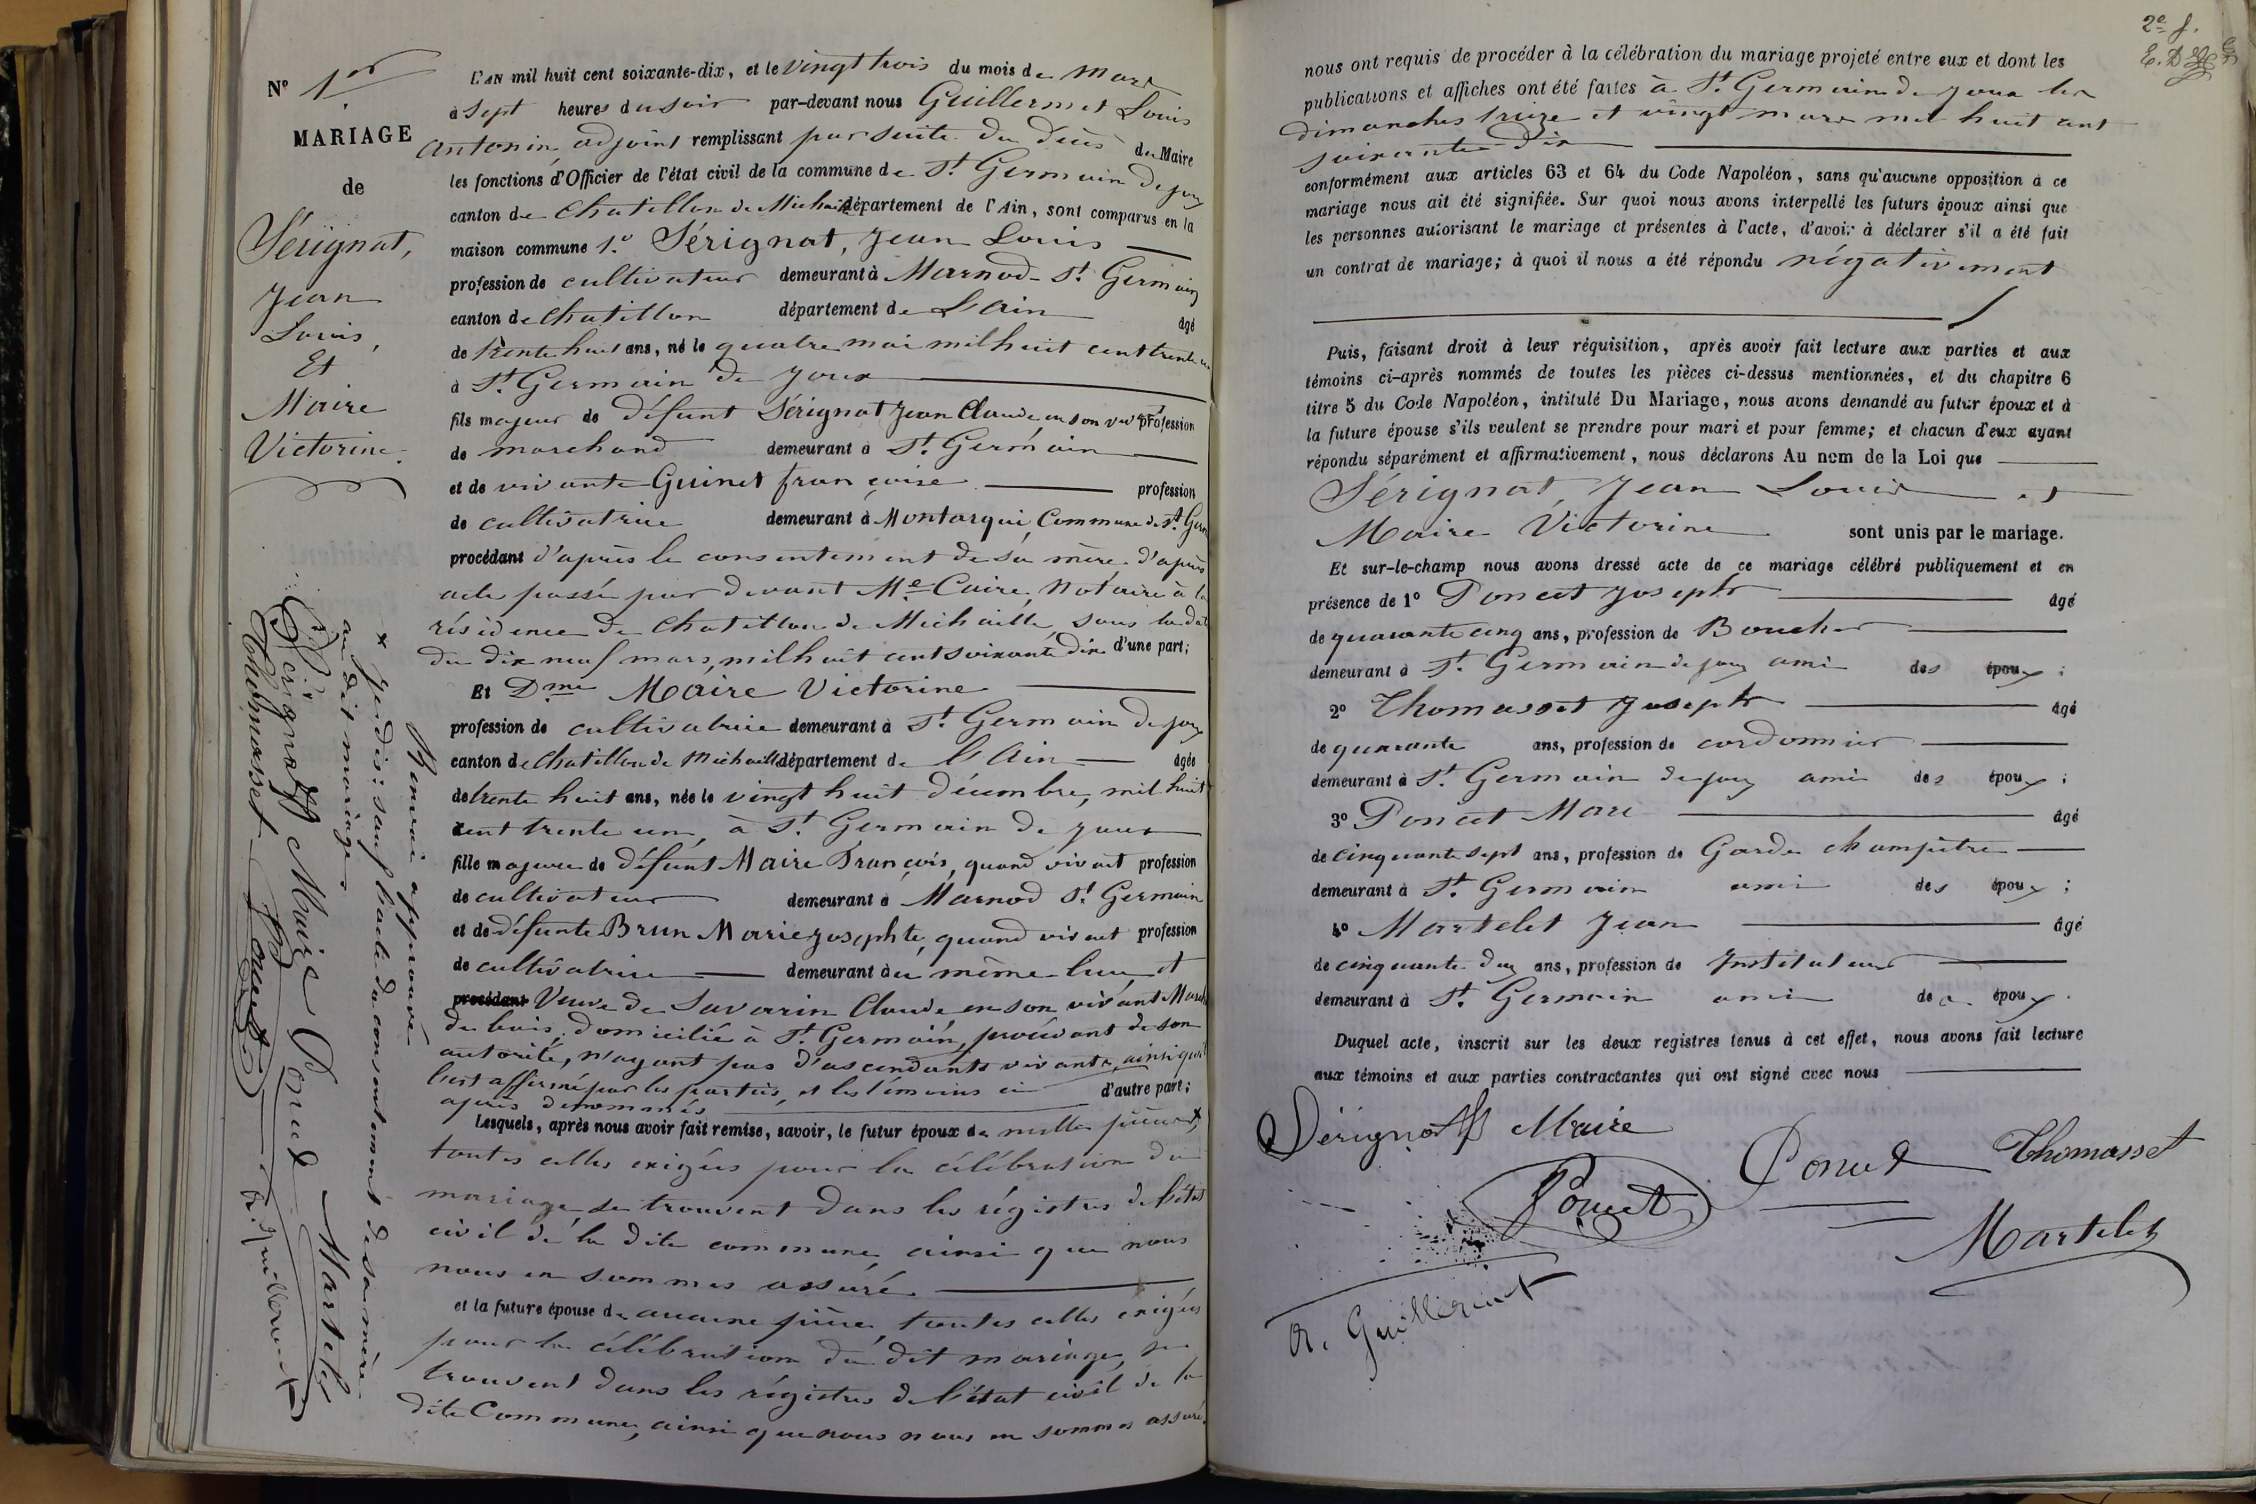 N° 1er
MARIAGE
de
Sérignat,
Jean
Louis,
Et
Maire
Victorine.
L'AN mil huit cent soixante-dix, et le vingt trois du mois de mars
à sept heures du soir par-devant nous Guillermet Louis
Antonin adjoint remplissant par suite du Décès du Maire
les fonctions d'Officier de l'état civil de la commune de St Germain de joux
canton de Chatillon de Michaille département de l'Ain, sont comparus en la
maison commune 1.° Sérignat, Jean Louis
profession de cultivateur demeurant à Marnod - St Germain
canton de Chatillon département de L'Ain âgé
de trente huit ans, né le quatre mai mil huit cent trente un
à St Germain de Joux
fils majeur de défunt Sérignat Jean Claude, en son vivt profession
de marchand demeurant à St Germain
et de vivante Guinet françoise profession
de cultivatrice demeurant à Montarqui Commune de St Germ
procédant d'après le consentement de sa mère d'après
acte passé par devant Me Caire, Notaire à la
résidence de Chatillon de Michaille sous la dat
du dix neuf mars, mil huit cent soixante dix d'une part;
Et Dme Maire Victorine
profession de cultivatrice demeurant à St Germain de joux
canton de Chatillon de Michaille département de L'Ain âgée
de trente huit ans, née le vingt huit décembre, mil huit
cent trente un, à St Germain de Joux
fille majeure de défunt Maire François, quand vivait profession
de cultivateur demeurant à Marnod St Germain
et de défunte Brun Marie josephte, quand vivait profession
de cultivatrice demeurant au même lieu et
procédant Veuve de Savarin Claude en son vivant March
de bois, domicilié à St Germain, procédant de son
autorité, n'ayant pas d'ascendants vivants, ainsi que
l'ont affirmé par les parties, et les témoins ci
après dénommés d'autre part;
Lesquels, après nous avoir fait remise, savoir, le futur époux de nulles pièces, x
toutes celles exigées pour la célébration du
mariage se trouvent dans les régistres de l'état
civil de la dite commune, ainsi que nous
nous en sommes assuré.
et la future épouse de aucune pièce, toutes celles exigées
pour la célébration du dit mariage, se
trouvent dans les régistres de l'état civil de la
dite Commune, ainsi que nous nous en sommes assuré.
Renvoi approuvé
x jesdis: sauf l'acte du consentement de sa mère
au dit mariage
Sérignat Maire Poncet Martelet
Thomasset Poncet A. Guillermet
2e f.
nous ont requis de procéder à la célébration du mariage projeté entre eux et dont les
publications et affiches ont été faites à St Germain de Joux les
dimanches treize et vingt mars mil huit cent
soixante-dix
conformément aux articles 63 et 64 du Code Napoléon, sans qu'aucune opposition à ce
mariage nous ait été signifiée. Sur quoi nous avons interpellé les futurs époux ainsi que
les personnes autorisant le mariage et présentes à l'acte, d'avoir à déclarer s'il a été fait
un contrat de mariage; à quoi il nous a été répondu négativement
Puis, faisant droit à leur réquisition, après avoir fait lecture aux parties et aux
témoins ci-après nommés de toutes les pièces ci-dessus mentionnées, et du chapitre 6
titre 5 du Code Napoléon, intitulé Du Mariage, nous avons demandé au futur époux et à
la future épouse s'ils veulent se prendre pour mari et pour femme; et chacun d'eux ayant
répondu séparément et affirmativement, nous déclarons Au nom de la Loi que
Sérignat, Jean Louis et
Maire Victorine sont unis par le mariage.
Et sur-le-champ nous avons dressé acte de ce mariage célébré publiquement et en
présence de 1° Poncet Joseph âgé
de quarante cinq ans, profession de Boucher
demeurant à St Germain de joux ami des époux;
2° Thomasset Joseph âgé
de quarante ans, profession de cordonnier
demeurant à St Germain de joux ami des époux;
3° Poncet Marc âgé
de cinquante sept ans, profession de Garde champêtre
demeurant à St Germain ami des époux;
4° Martelet Jean âgé
de cinquante deux ans, profession de Instituteur
demeurant à St Germain ami des époux.
Duquel acte, inscrit sur les deux registres tenus à cet effet, nous avons fait lecture
aux témoins et aux parties contractantes qui ont signé avec nous
Sérignat Maire
Poncet Poncet Thomasset
Martelet
A. Guillermet